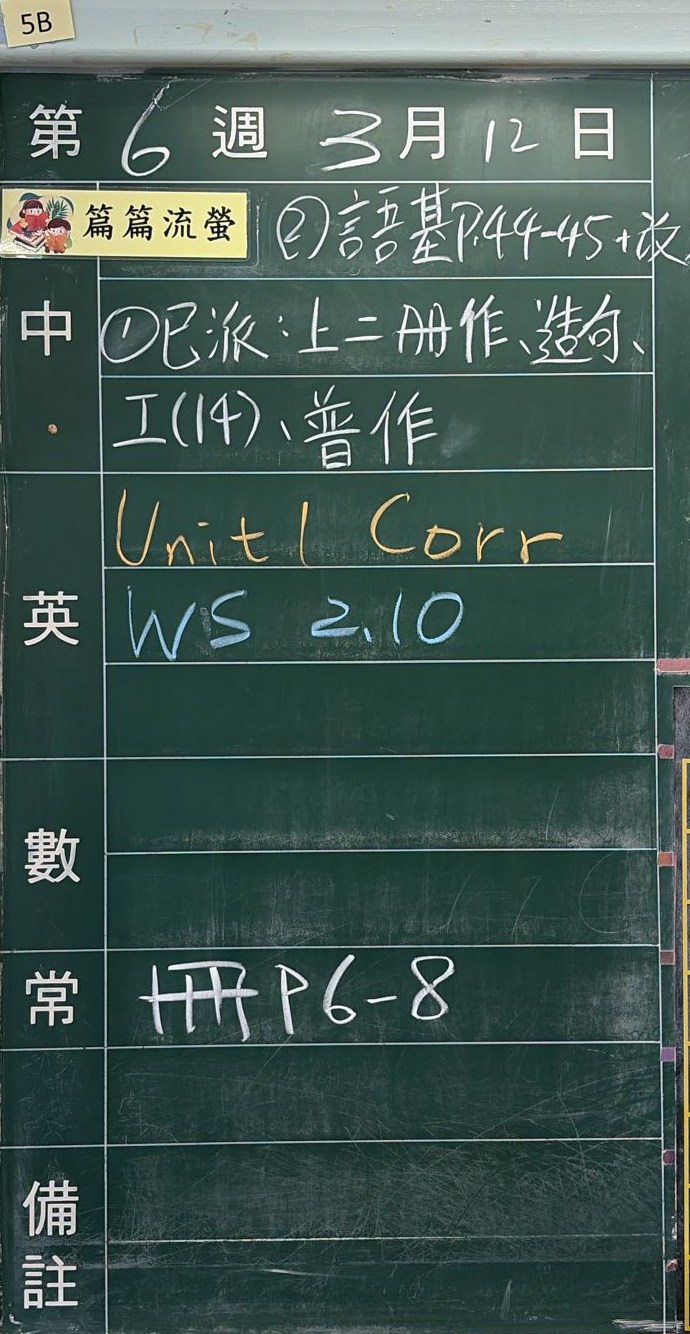 5B
第 6 週 3 月 12 日
篇篇流螢 ②語基P.44-45+改
中 ①已派:上二冊作、造句、
工(14)、普作
英 Unit 1 Corr
WS 2.10
數
常 冊P6-8
備註